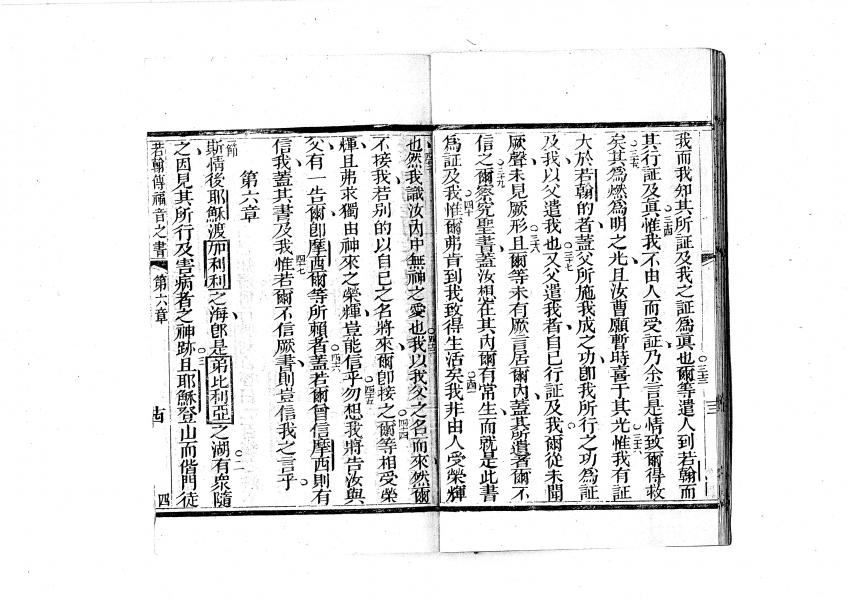 我而我知其所証及我之証為眞也爾等遣人到若翰而
其行証及眞惟我不由人而受証乃余言是情致爾得救
矣其為燃為明之光且汝曹願暫時喜于其光惟我有証
大於若翰的者蓋父所施我成之功卽我所行之功為証
及我以父遣我也又父遣我者自已行証及我爾從未聞
厥聲未見厥形且爾等未有厥言居爾內蓋其所遣者爾不
信之爾察究聖書蓋汝想在其內爾有常生而就是此書
為証及我惟爾弗肯到我致得生活矣我非由人受榮輝
也然我識汝內中無神之愛也我以我父之名而來然爾
不接我若別的以自己之名將來爾卽接之爾等相受榮
輝且弗求獨由神來之榮輝豈能信乎勿想我將告汝與
父有一告爾卽摩西爾等所賴者蓋若爾曾信摩西則有
信我蓋其書及我惟若爾不信厥書則豈信我之言乎
第六章
斯情後耶穌渡加利利之海卽是第比利亞之湖有衆隨
之因見其所行及害病者之神跡且耶穌登山而偕門徒
若翰傳福音之書 第六章 四